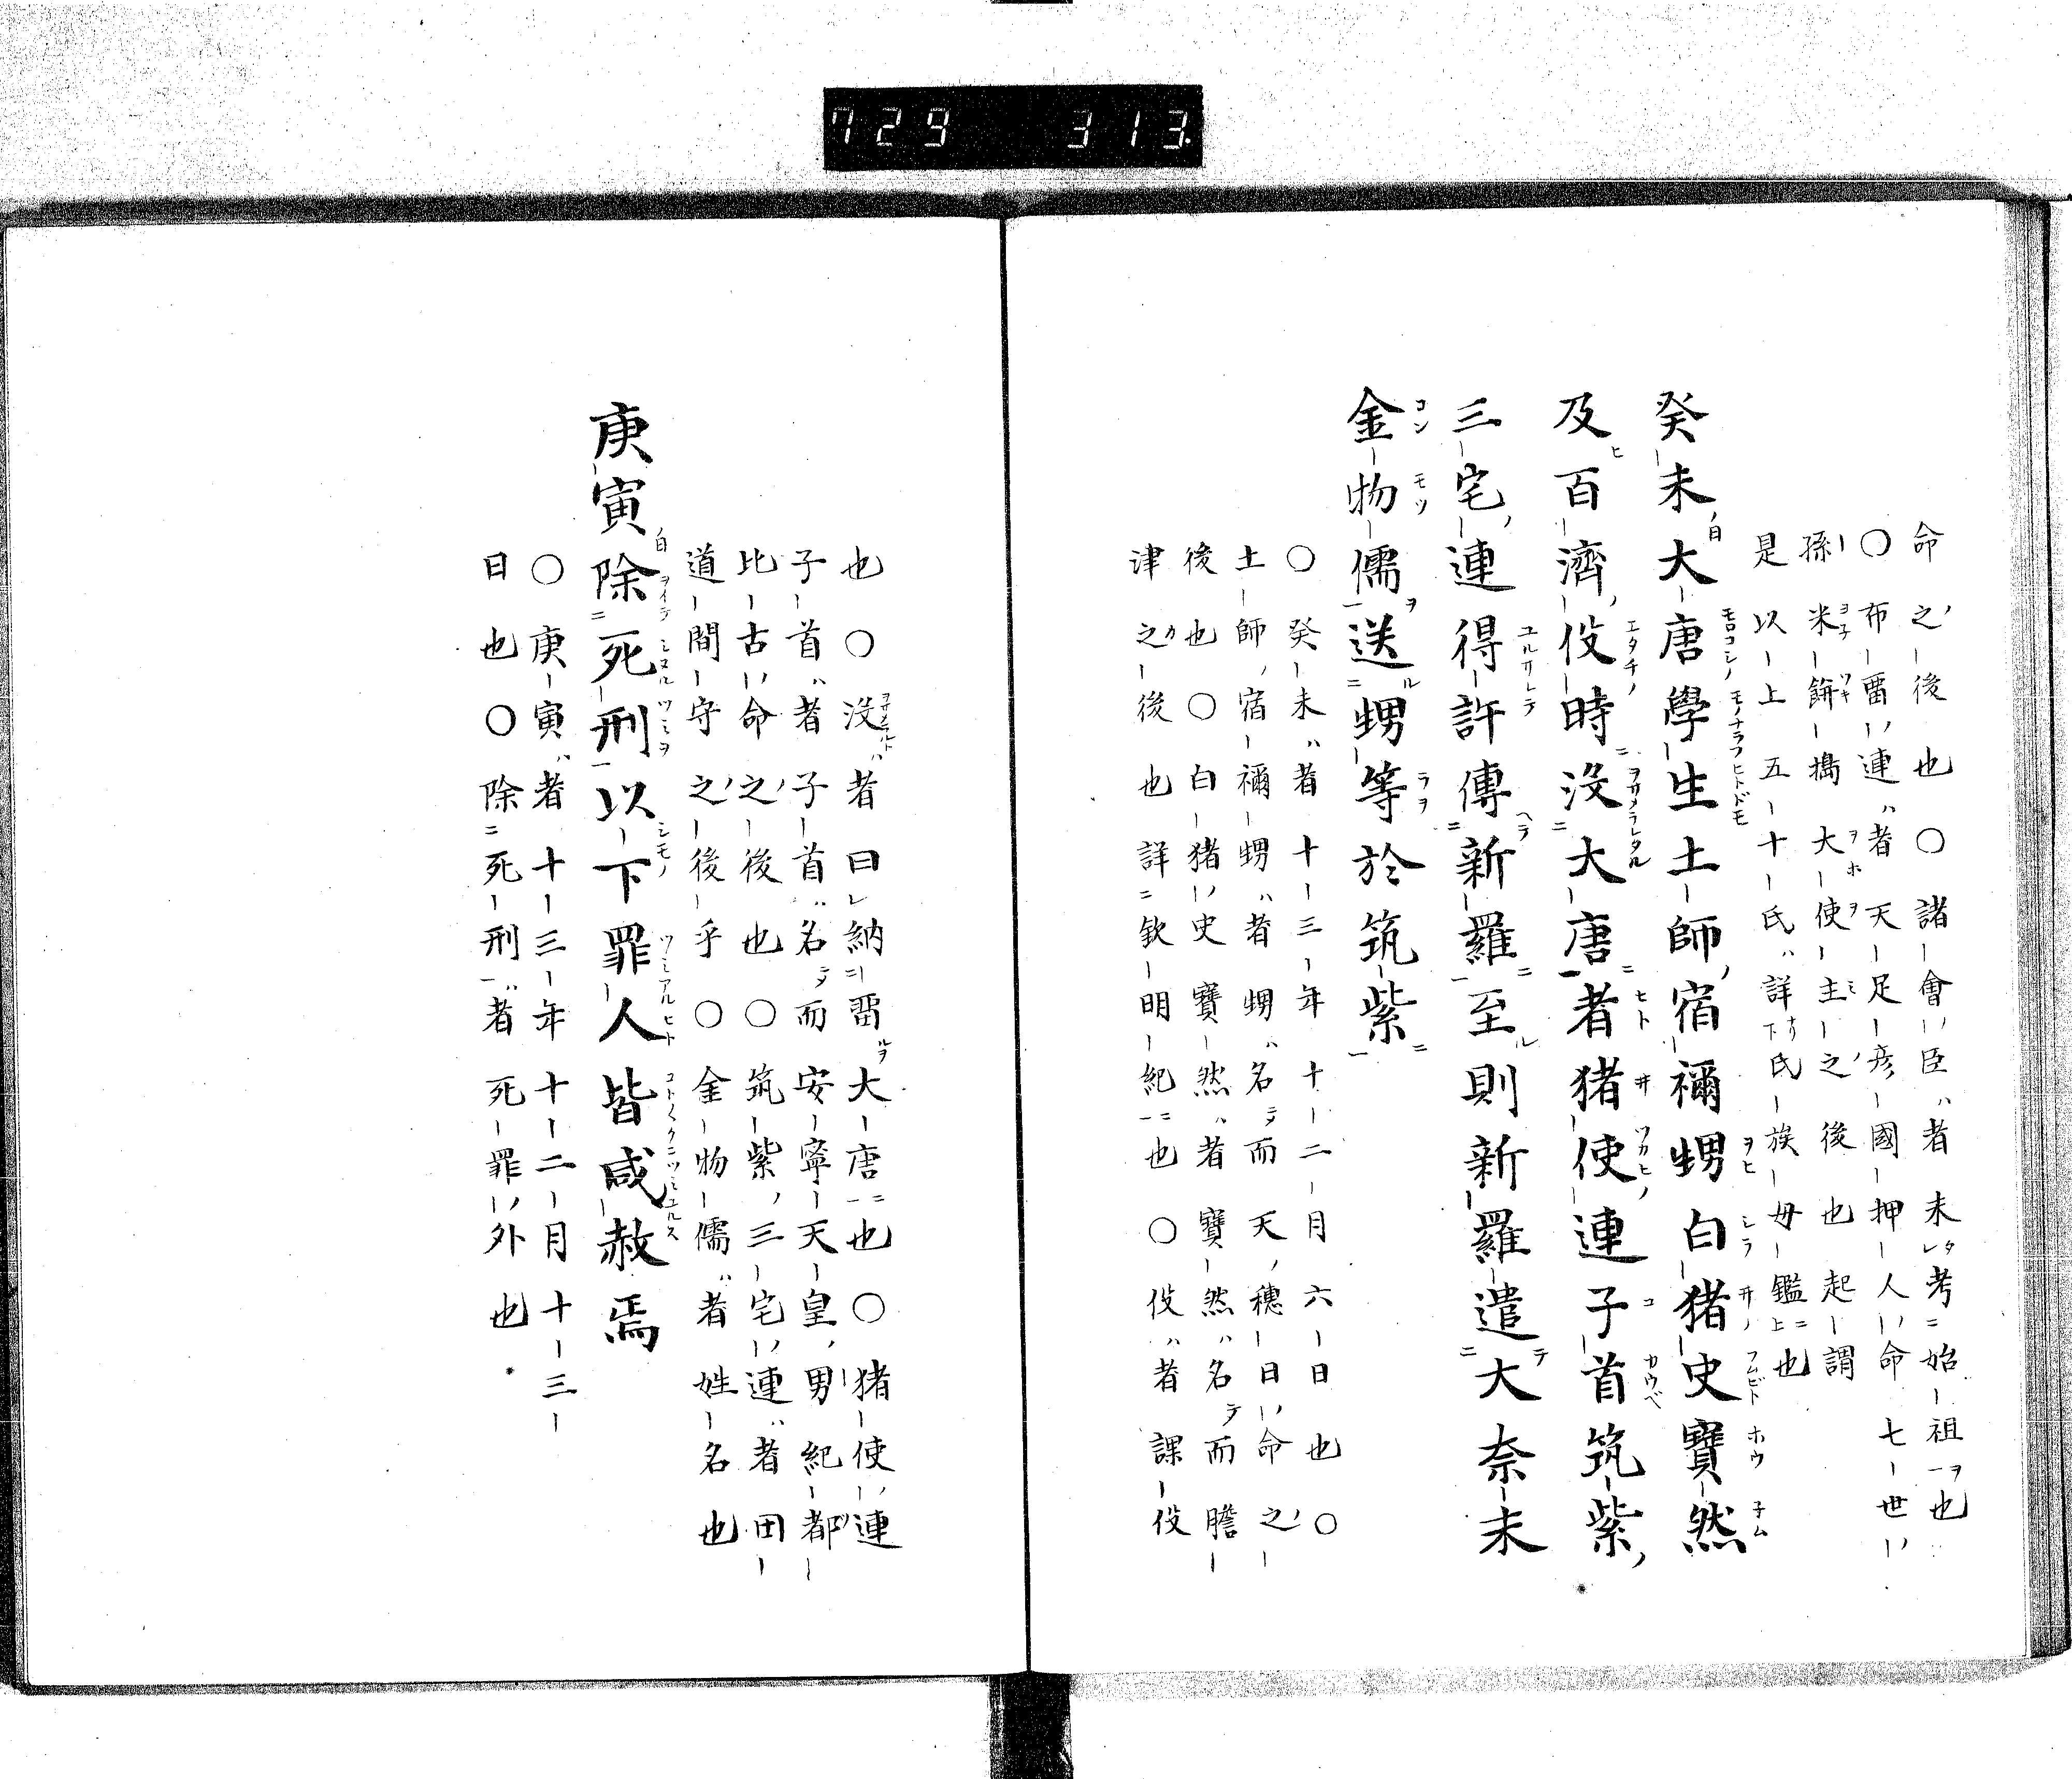 729 313
命之後也〇諸會臣者未考始祖也
〇布畱連者天足彦國押人命七世
孫米餅搗大使主之後也起謂
是以上五十氏詳氏族母鑑也
癸未大唐學生土師宿禰甥白猪史寶然
及百濟役時沒大唐者猪使連子首筑紫
三宅連得許傳新羅至則新羅遣大奈末
金物儒送甥等於筑紫
〇癸未者十三年十二月六日也〇
土師宿禰甥者甥名而天穗日命之
後也〇白猪史寶然者寶然名而膽
津之後也詳欽明紀也〇役者課役
也〇沒者曰納畱大唐也〇猪使連
子首者子首名而安寧天皇男紀都
比古命之後也〇筑紫三宅連者田
道間守之後乎〇金物儒者姓名也
庚寅除死刑以下罪人皆咸赦焉
〇庚寅者十三年十二月十三
日也〇除死刑者死罪外也